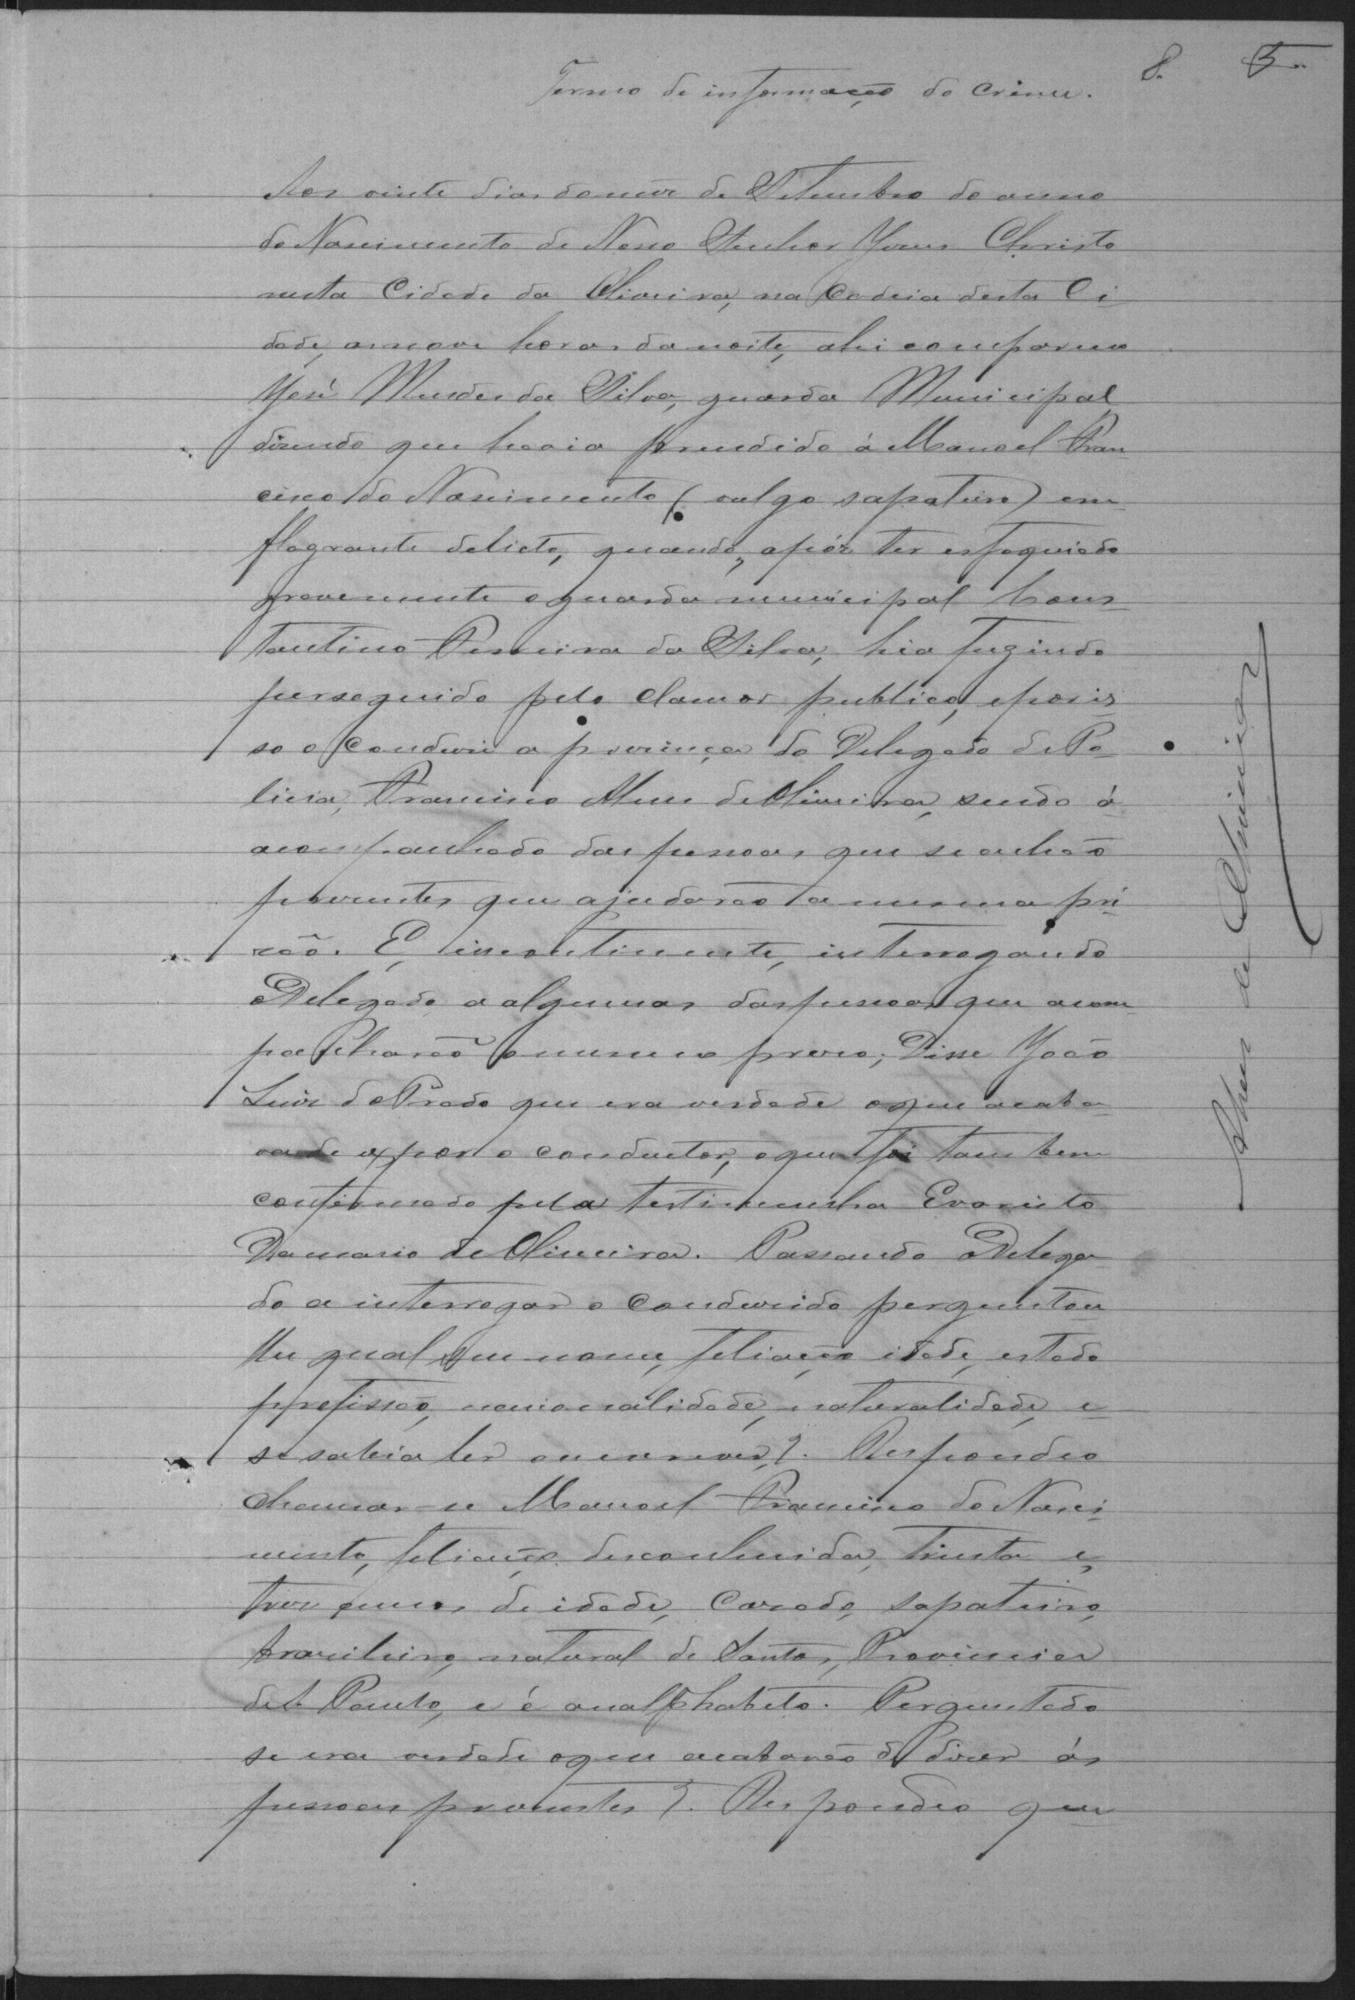 8. 5
Termo de informação do crime.
Aos vinte dias do mez de Setembro do anno
do Nascimento de Nosso Senhor Jesus Christo
nesta Cidade da Oliveira, na Cadeia desta Ci-
dade, as nove horas da noite, ahi compareceo
José Mendes da Silva, guarda Municipal,
dizendo que havia prendido á Manoel Fran
cisco do Nascimento (vulgo sapateiro) em
flagrante delicto, quando, apóz ter esfaquiado
gravemente o guarda municipal Cons-
tantino Ferreira da Silva, hia fugindo
perseguido pelo clamor publico, e por is-
so o conduzi a prezença do Delegado de Po-
licia, Francisco Alves de Oliveira, sendo á
acompanhado das pessoas que se achão
prezentes que ajudarão a mesma pri-
zão. E, incontinente, interrogando
Delegado a algumas das pessoas que acom
panharão o mesmo prezo; Disse João
Luiz do Prado que era verdade o que acaba-
va de expor o conductor, o que foi tambem
confirmado pela testimunha Evaristo
Damasio de Oliveira. Passando o Delega
do a interrogar o conduzido perguntou
lhe qual seu nome, filiação, idade, estado
profissão, nacionalidade, naturalidade, e
se sabia ler e escrever?. Respondeo
chamar-se Manoel Francisco do Nasci-
mento, filiação desconhecida, trinta e
trez annos de idade, cazado, sapateiro,
brazileiro, natural de Santos, Provincia
de S. Paulo, e é analphabeto. Perguntado
se era verdade o que acabavão de dizer ás
pessoas prezentes?. Respondeo que
Alves de Oliveira